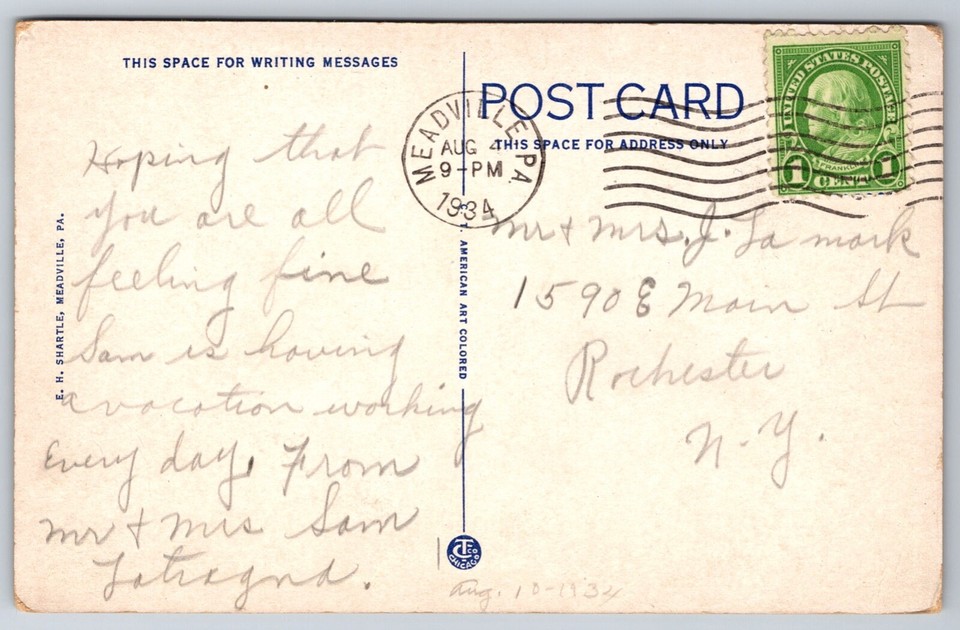 THIS SPACE FOR WRITING MESSAGES
Hoping that
you are all
feeling fine
Sam is having
a vacation working
every day. From
Mr & Mrs Sam
E. H. SHARTLE, MEADVILLE, PA.
C. T. AMERICAN ART COLORED
CHICAGO
POST CARD
THIS SPACE FOR ADDRESS ONLY
MEADVILLE, PA.
AUG 4
9-PM
1934
UNITED STATES POSTAGE
FRANKLIN
1 CENT 1
Mr & Mrs. J. La mark
1590 E Main St
Rochester
N. Y.
Aug. 10-1934